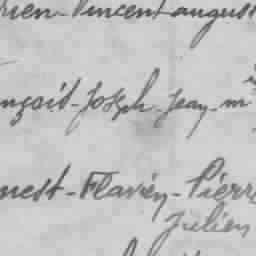 rien-Vincent august
nçois-Joseph-Jean-m
nest-Flavien-Pierre
Julien